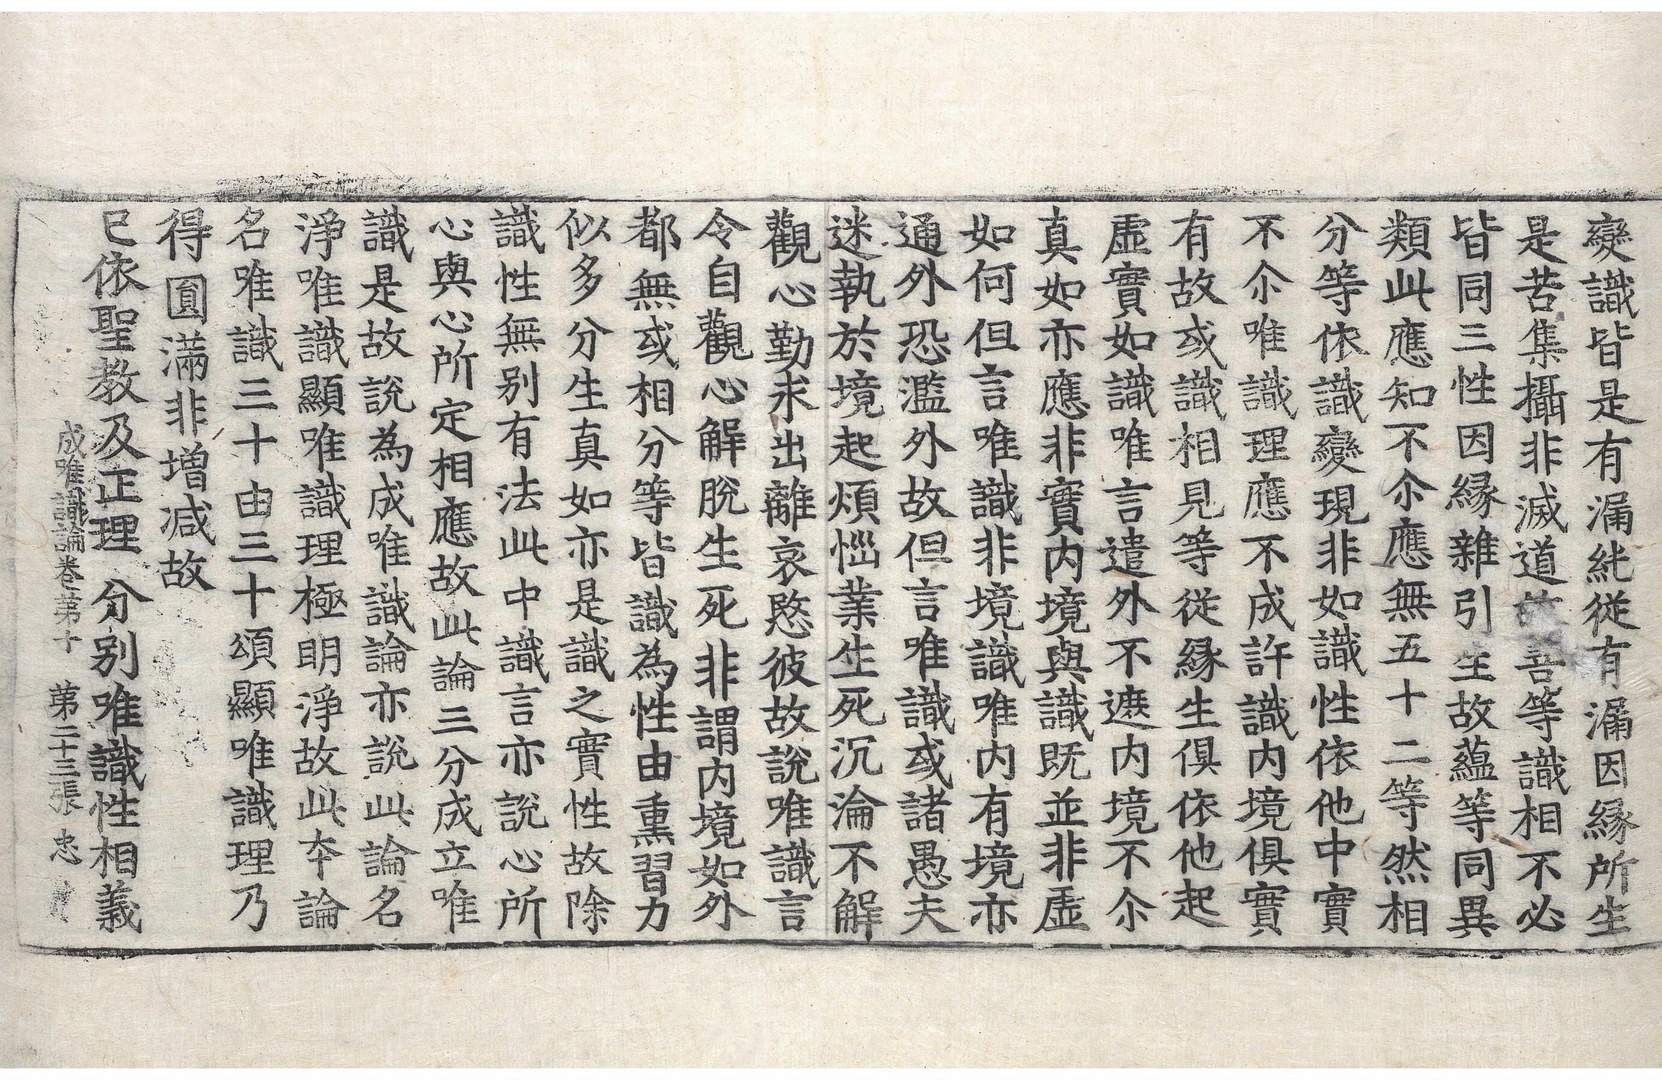 變識皆是有漏純從有漏因緣所生
是苦集攝非滅道善等識相不必
皆同三性因緣雜引生故蘊等同異
類此應知不尒應無五十二等然相
分等依識變現非如識性依他中實
不尒唯識理應不成許識內境俱實
有故或識相見等從緣生俱依他起
虛實如識唯言遣外不遮內境不尒
真如亦應非實內境與識既並非虛
如何但言唯識非境識唯內有境亦
通外恐濫外故但言唯識或諸愚夫
迷執於境起煩惱業生死沉淪不解
觀心勤求出離哀愍彼故說唯識言
令自觀心解脫生死非謂內境如外
都無或相分等皆識為性由熏習力
似多分生真如亦是識之實性故除
識性無別有法此中識言亦說心所
心與心所定相應故此論三分成立唯
識是故說為成唯識論亦說此論名
淨唯識顯唯識理極明淨故此夲論
名唯識三十由三十頌顯唯識理乃
得圓滿非增減故
已依聖教及正理 分別唯識性相義
成唯識論卷第十 第二十三張 忠